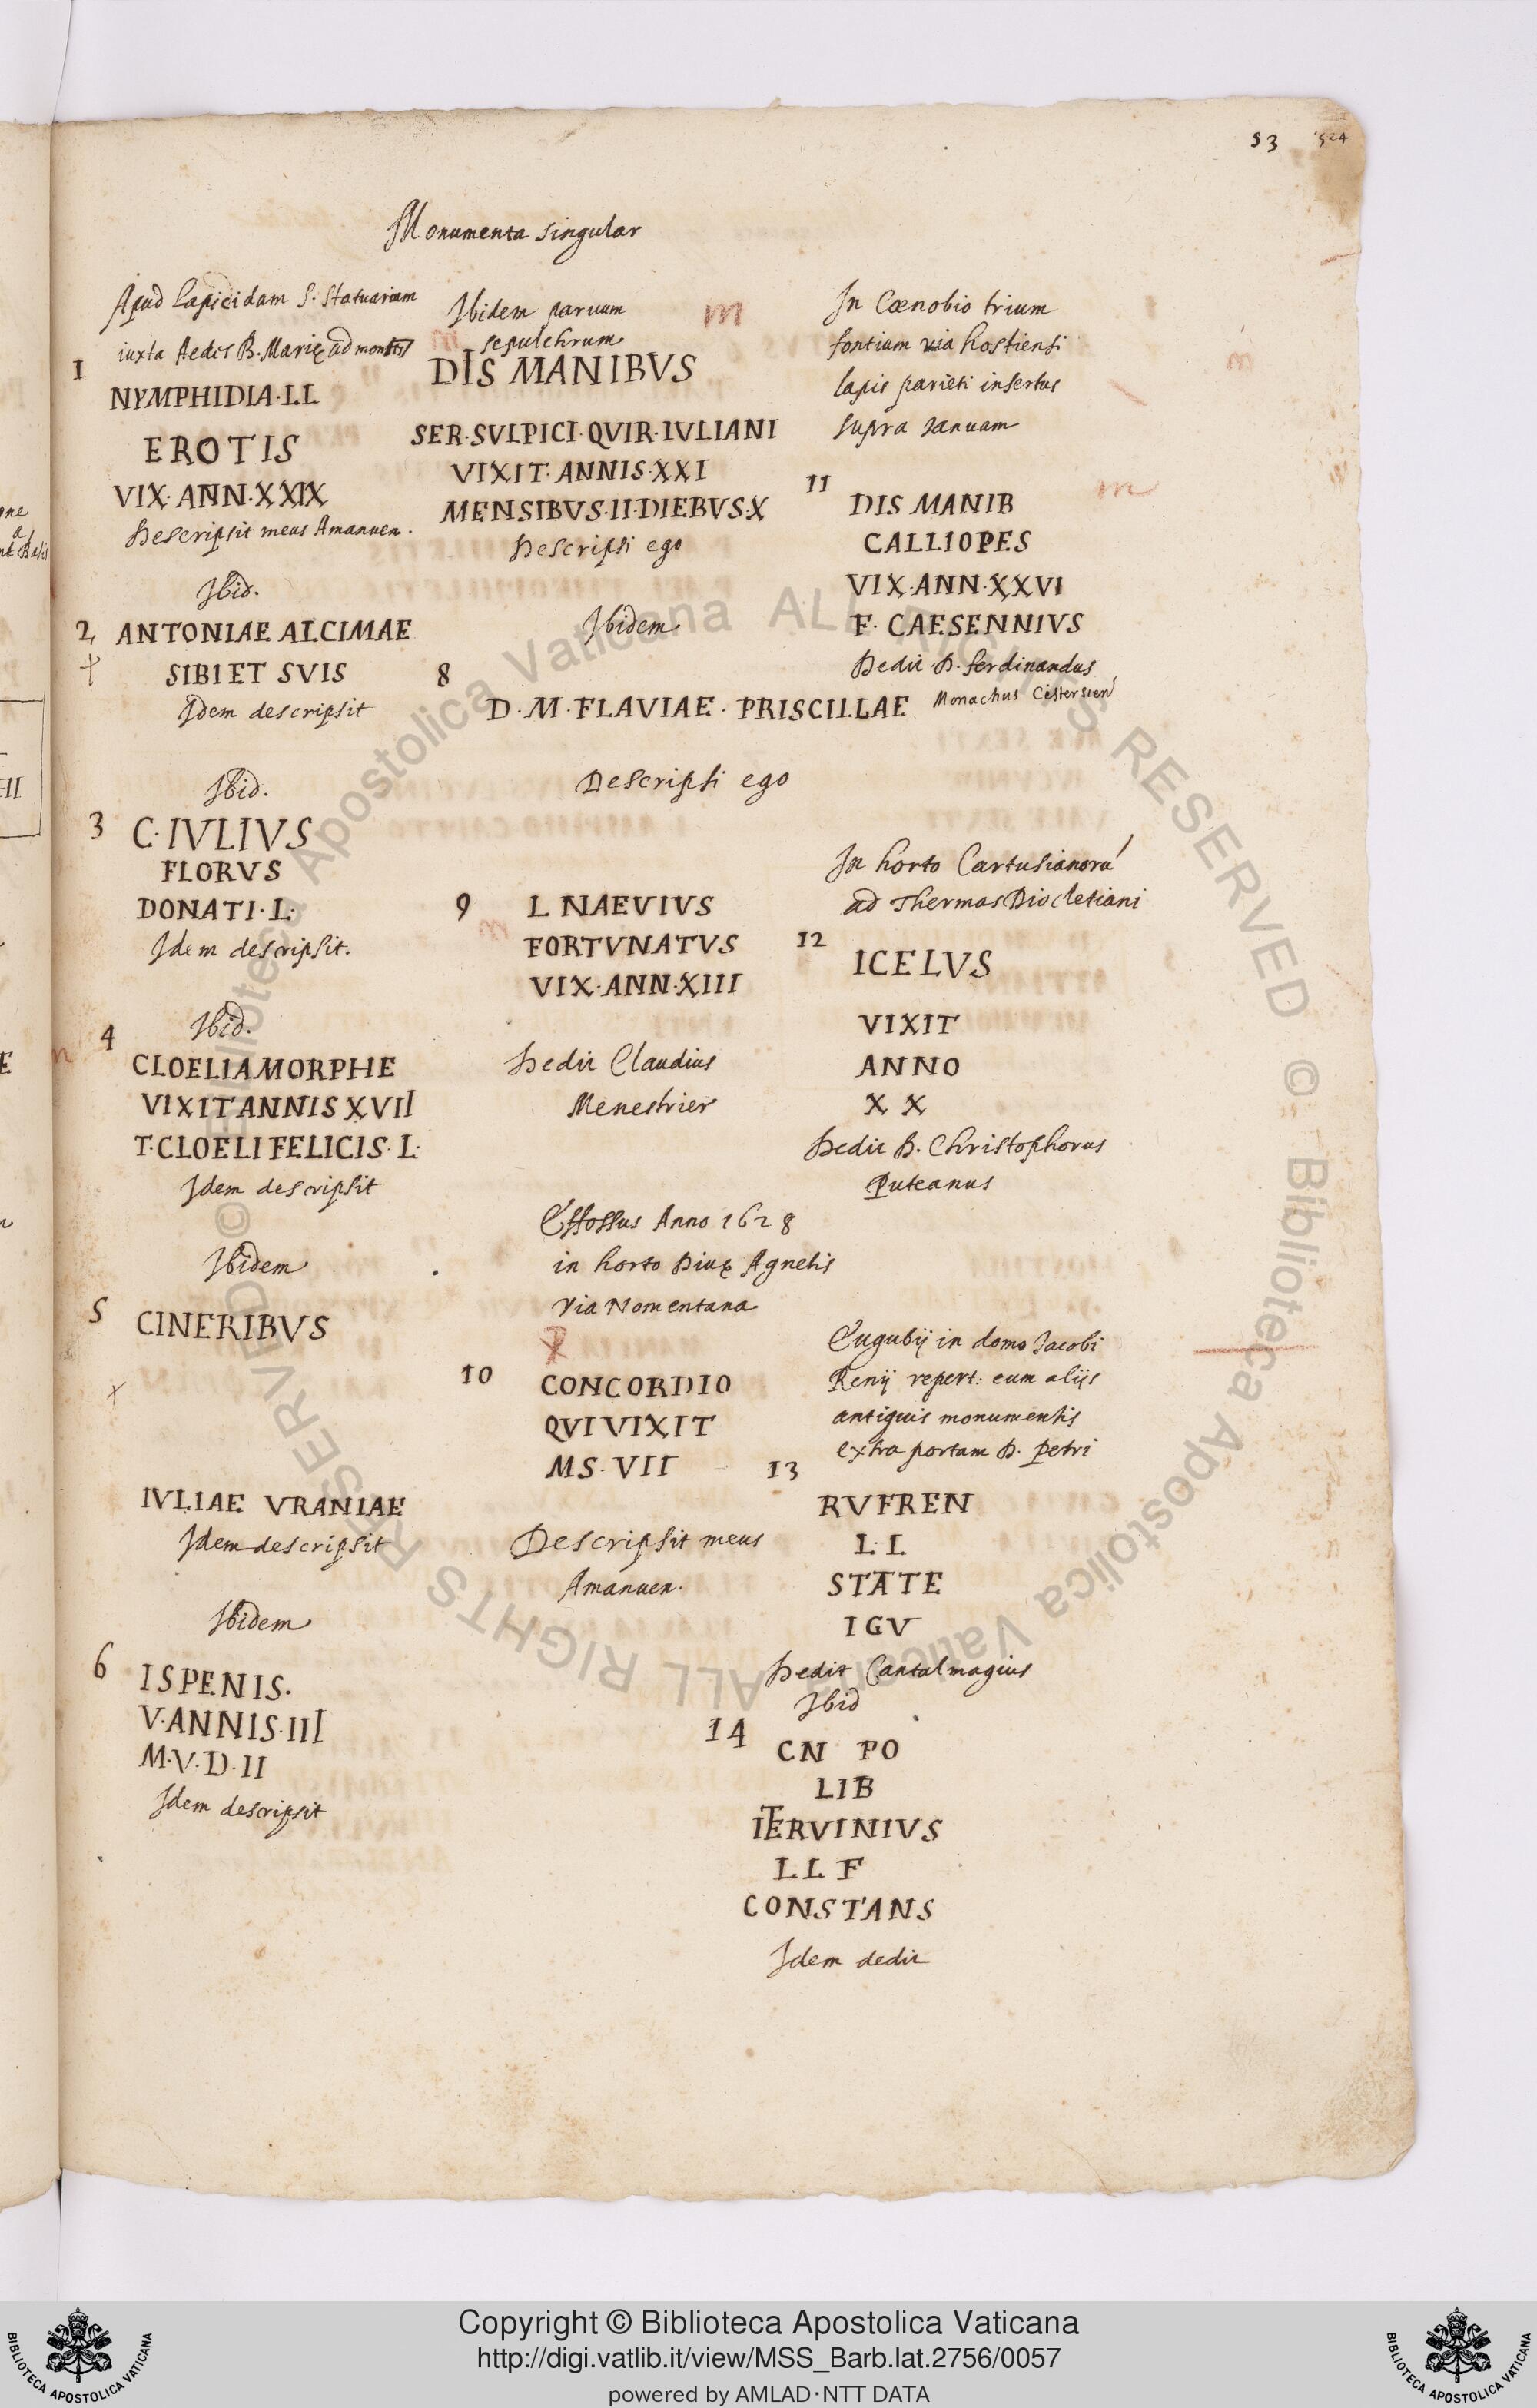 53 524
Monumenta singular
Apud lapicidam S. Statuariam
iuxta Aedes B. Marię ad montes
1
NYMPHIDIA·LL
EROTIS
VIX·ANN·XXIX
Descripsit meus Amanuen.
Ibid.
2
ANTONIAE ALCIMAE
SIBI ET SVIS
Idem descripsit
Ibid.
3
C·IVLIVS
FLORVS
DONATI·L·
Idem descripsit.
Ibid.
4
CLOELIA MORPHE
VIXIT ANNIS XVII
T·CLOELI FELICIS·L·
Idem descripsit
Ibidem
5
CINERIBVS
IVLIAE VRANIAE
Idem descripsit
Ibidem
6
ISPENIS·
V·ANNIS·III
M·V·D·II
Idem descripsit
Ibidem paruum
sepulchrum
m
DIS MANIBVS
SER·SVLPICI·QVIR·IVLIANI
VIXIT·ANNIS·XXI
MENSIBVS·II·DIEBVS·X
Descripsi ego
Ibidem
8
D·M·FLAVIAE·PRISCILLAE
Descripsi ego
9
L NAEVIVS
FORTVNATVS
VIX·ANN·XIII
Dedit Claudius
Menestrier
Effossus Anno 1628
in horto Diuę Agnetis
Via Nomentana
10
CONCORDIO
QVI VIXIT
MS·VII
Descripsit meus
Amanuen.
In Cœnobio trium
fontium via hostiensi
lapis parieti insertus
supra Ianuam
11
DIS MANIB
CALLIOPES
VIX·ANN·XXVI
F·CAESENNIVS
Dedit D. ferdinandus
Monachus Cistersien
In horto Cartusianorū
ad Thermas Diocletiani
12
ICELVS
VIXIT
ANNO
X X
Dedit D. Christophorus
Puteanus
Eugubij in domo Jacobi
Renij repert: cum alijs
antiquis monumentis
extra portam D. Petri
13
RVFREN
L·L
STATE
IGV
Dedit Cantalmagius
Ibid
14
CN PO
LIB
ITERVINIVS
L L F
CONSTANS
Idem dedit
© Biblioteca Apostolica Vaticana ALL RIGHTS RESERVED © Biblioteca Apostolica Vaticana ALL RIGHTS RESERVED
BIBLIOTECA APOSTOLICA VATICANA
Copyright © Biblioteca Apostolica Vaticana
http://digi.vatlib.it/view/MSS_Barb.lat.2756/0057
powered by AMLAD·NTT DATA
BIBLIOTECA APOSTOLICA VATICANA